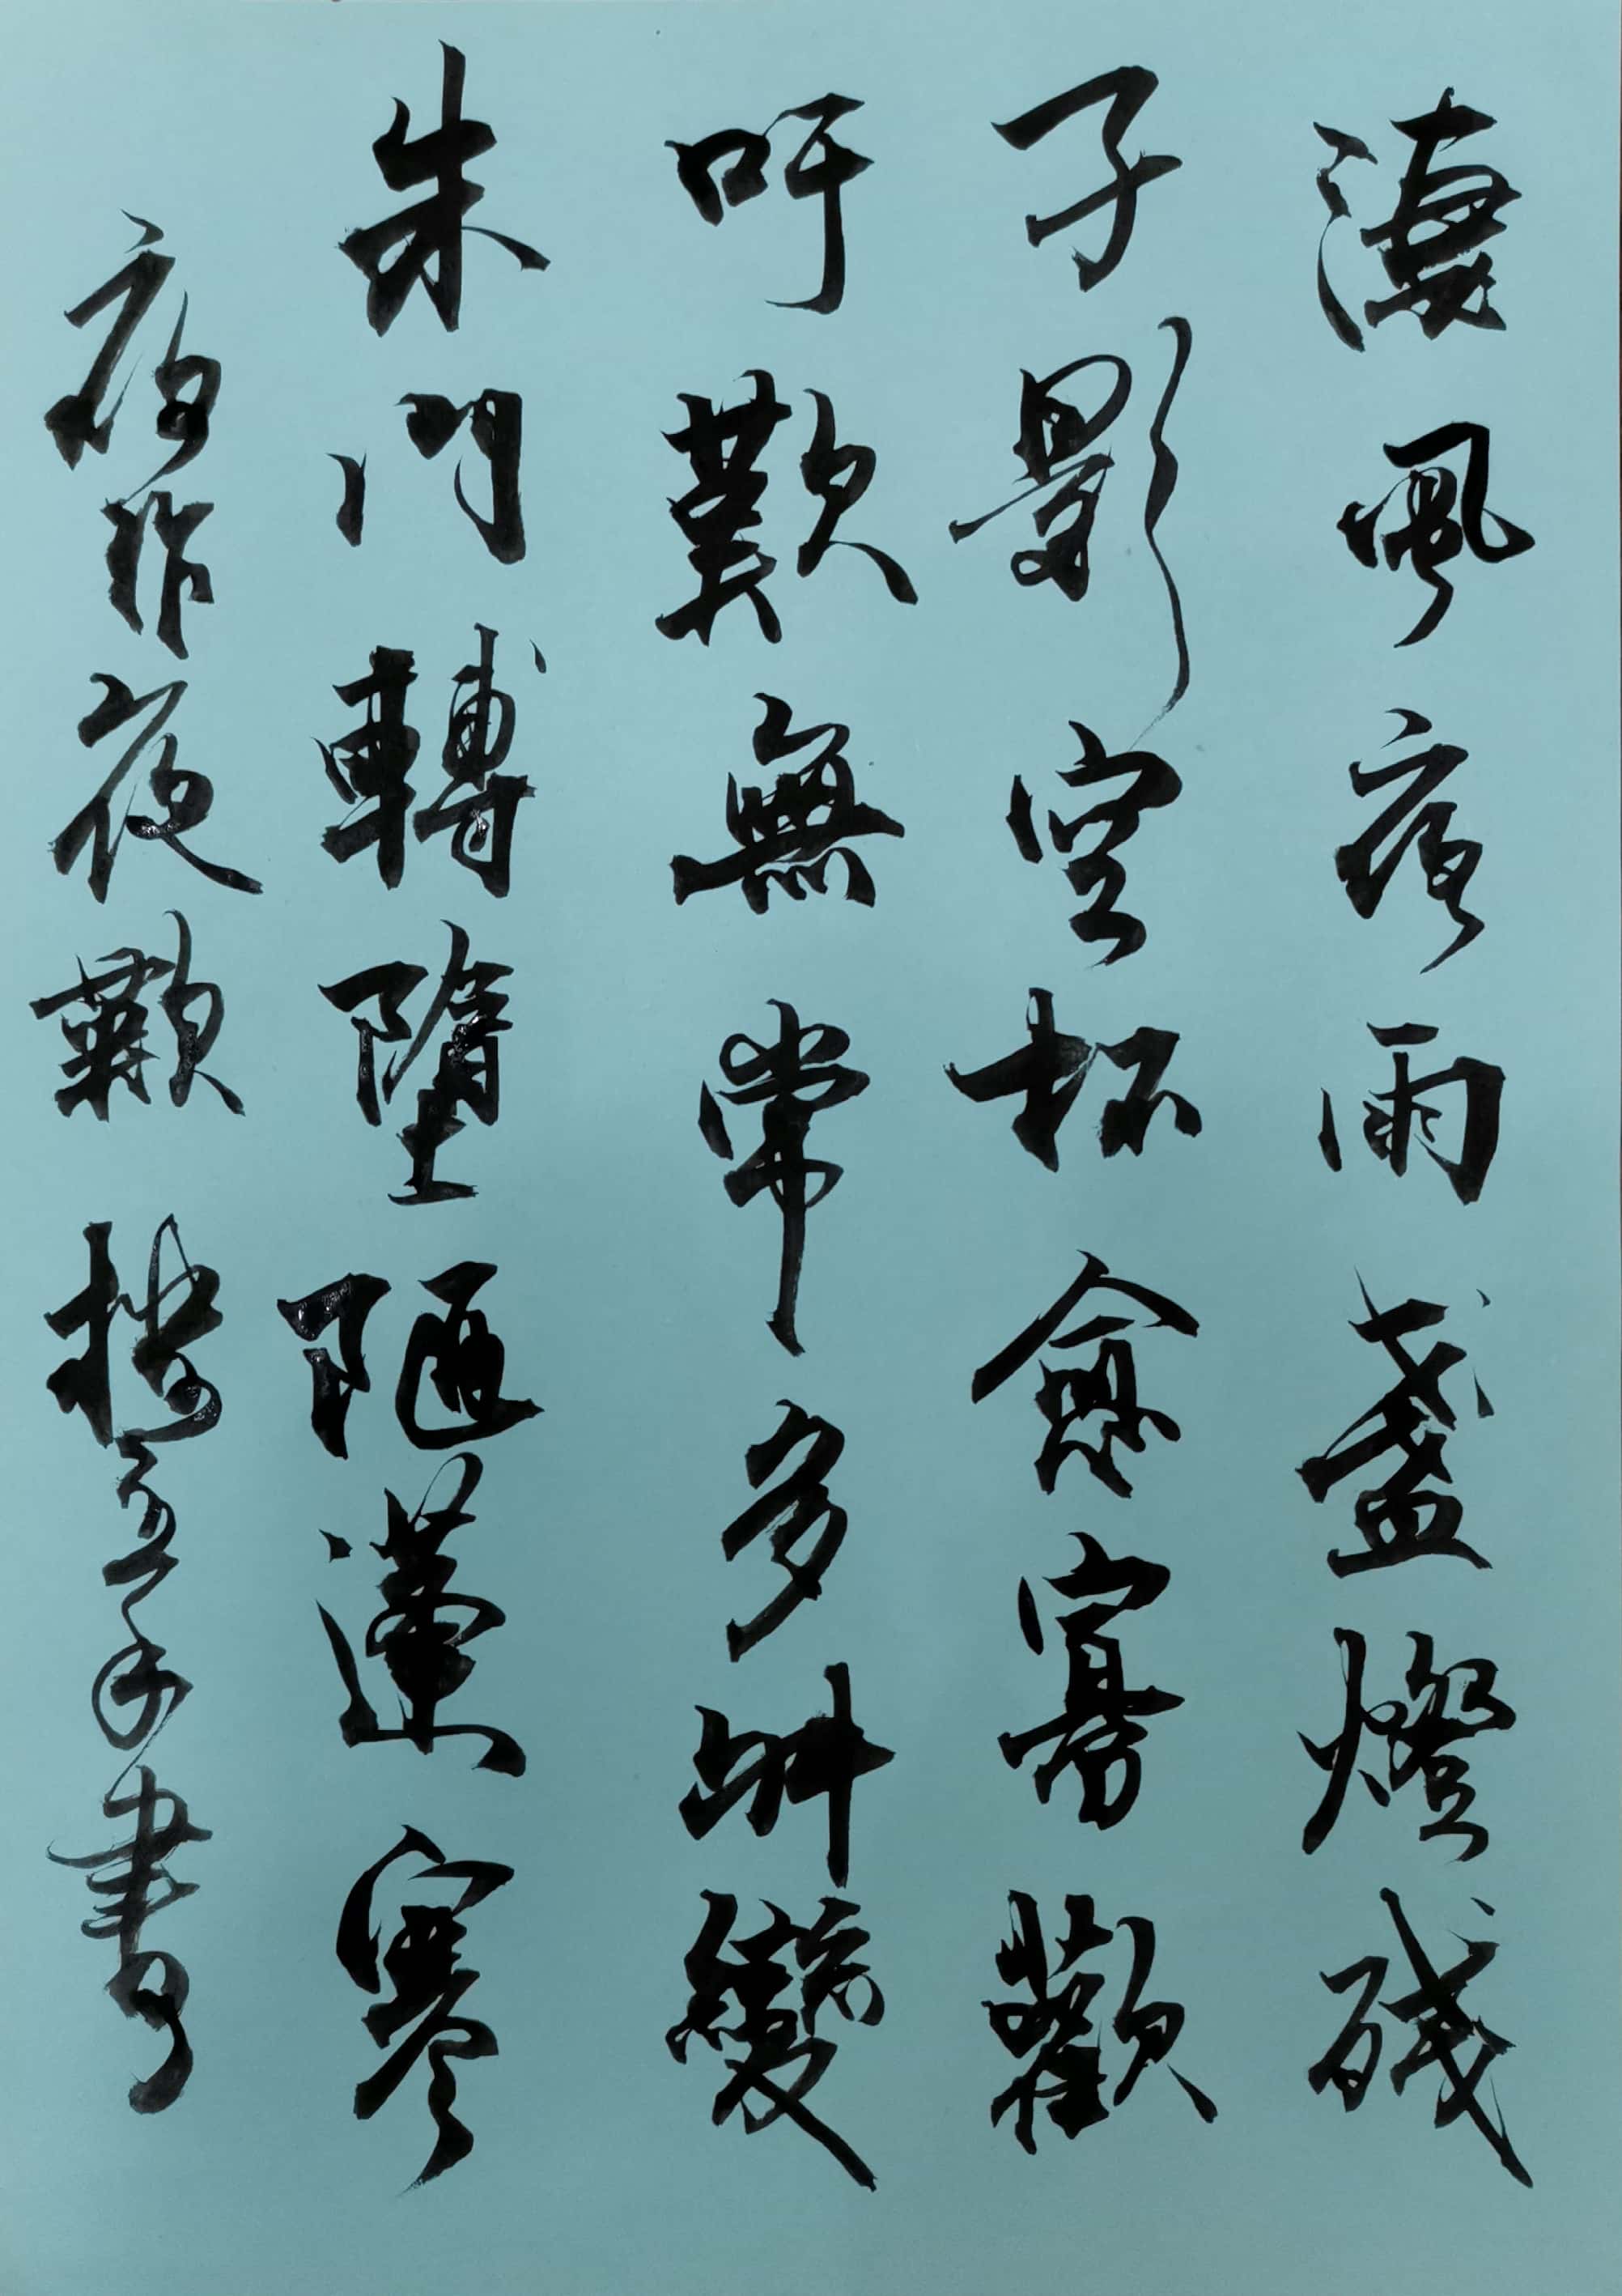 淒風夜雨盞燈殘
子影空杯愈寡歡
吁歎無常多舛變
朱門轉墮陋蓬寒
夜作夜歎 書